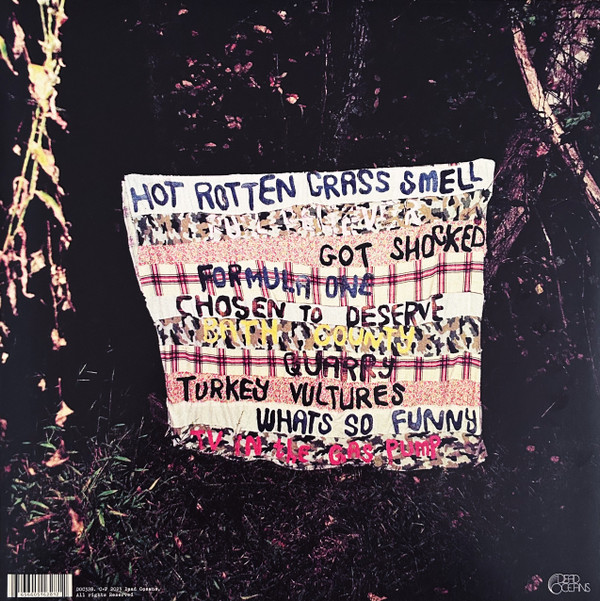 HOT ROTTEN GRASS SMELL
GOT SHOCKED
FORMULA ONE
CHOSEN TO DESERVE
BATH COUNTY
QUARRY
TURKEY VULTURES
WHATS SO FUNNY
TV IN the GAS PUMP
DOC328. ©+℗ 2023 Dead Oceans.
All rights Reserved
DEAD
OCEANS